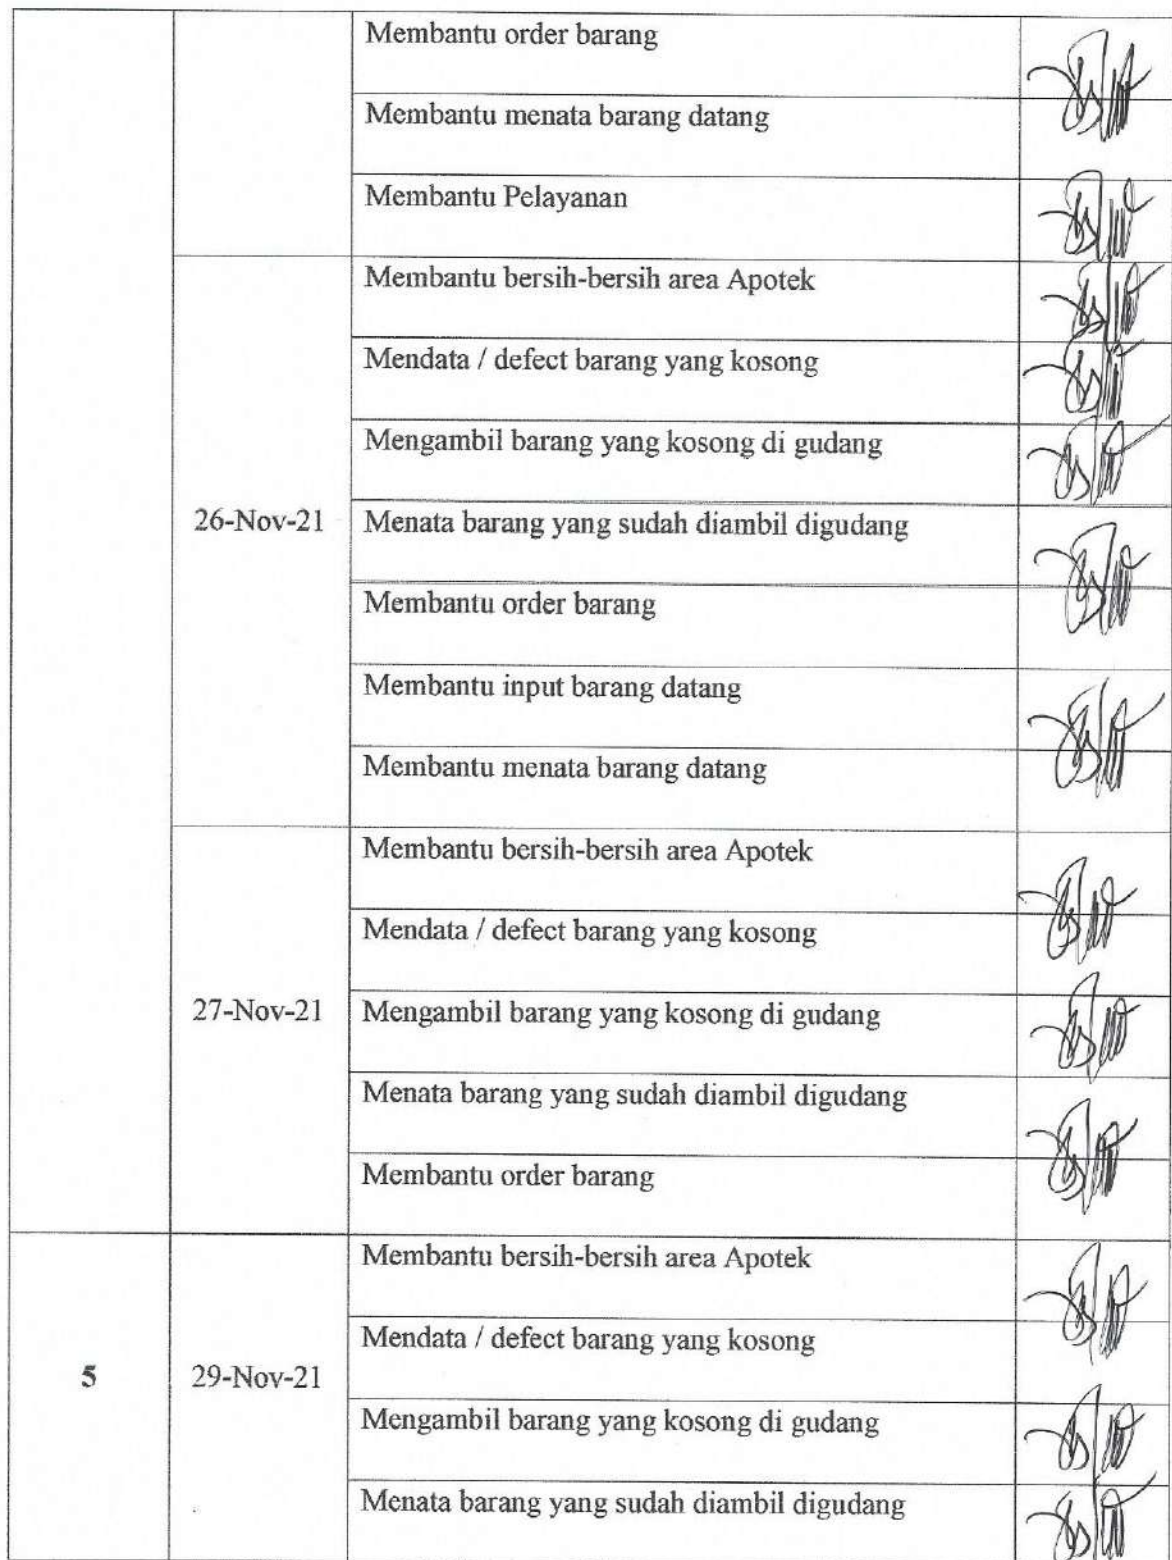 Membantu order barang
Membantu menata barang datang
Membantu Pelayanan
26-Nov-21
Membantu bersih-bersih area Apotek
Mendata / defect barang yang kosong
Mengambil barang yang kosong di gudang
Menata barang yang sudah diambil digudang
Membantu order barang
Membantu input barang datang
Membantu menata barang datang
27-Nov-21
Membantu bersih-bersih area Apotek
Mendata / defect barang yang kosong
Mengambil barang yang kosong di gudang
Menata barang yang sudah diambil digudang
Membantu order barang
5
29-Nov-21
Membantu bersih-bersih area Apotek
Mendata / defect barang yang kosong
Mengambil barang yang kosong di gudang
Menata barang yang sudah diambil digudang